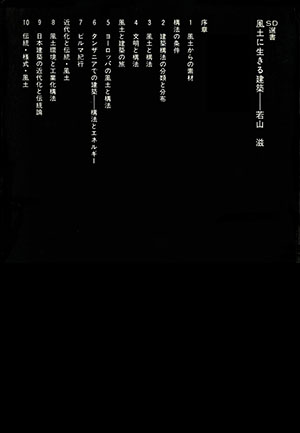 SD選書
風土に生きる建築――若山 滋
序章
1 風土からの素材
構法の条件
2 建築構法の分類と分布
3 風土と構法
4 文明と構法
5 ヨーロッパの風土と構法
風土と建築の旅
6 タンザニアでの建築――構法とエネルギー
7 ビルマ紀行
近代化と伝統・風土
8 風土環境と工業化構法
9 日本建築の近代化と伝統論
10 伝統・様式・風土